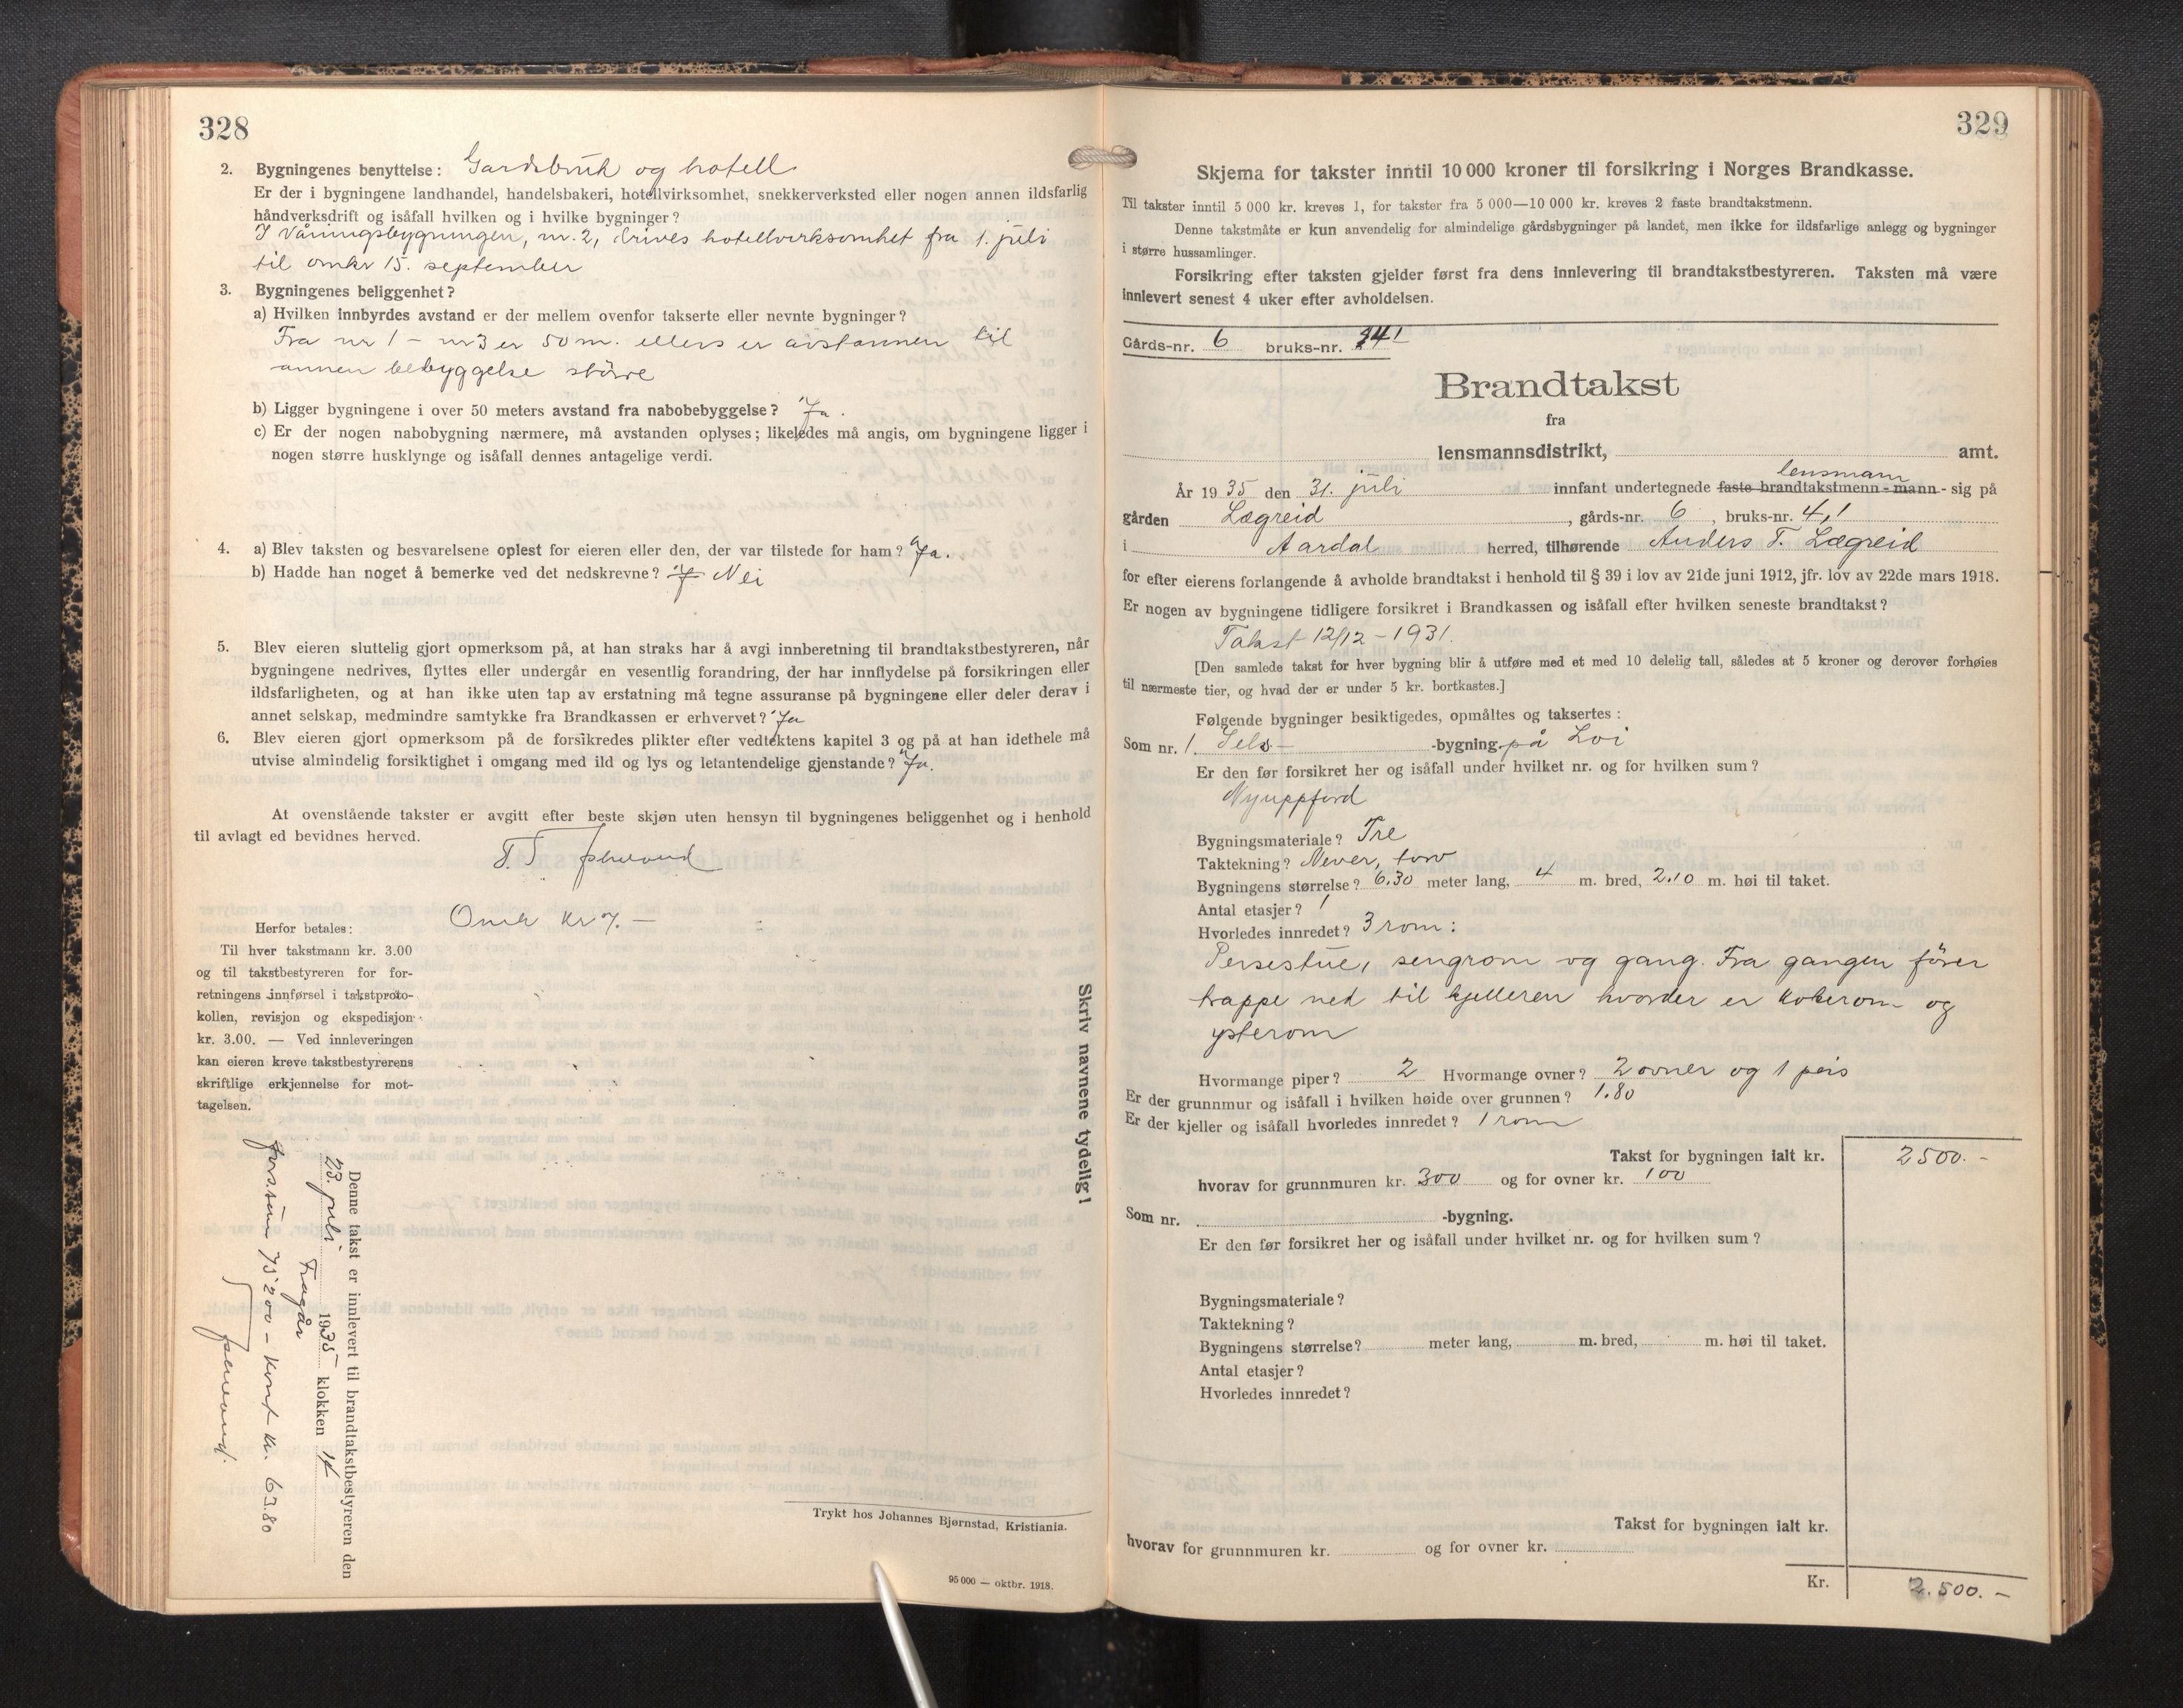 328
2. Bygningenes benyttelse: Gardsbruk og hotell
Er der i bygningene landhandel, handelsbakeri, hotellvirksomhet, snekkerverksted eller nogen annen ildsfarlig
håndverksdrift og isåfall hvilken og i hvilke bygninger?
I våningsbygningen, nr. 2, drives hotellvirksomhet fra 1. juli
til omkr 15. september
3. Bygningenes beliggenhet?
a) Hvilken innbyrdes avstand er der mellem ovenfor takserte eller nevnte bygninger?
Fra nr 1 - nr 3 er 50 m. ellers er avstannen til
annen bebyggelse større
b) Ligger bygningene i over 50 meters avstand fra nabobebyggelse? Ja.
c) Er der nogen nabobygning nærmere, må avstanden oplyses; likeledes må angis, om bygningene ligger i
nogen større husklynge og isåfall dennes antagelige verdi.
4. a) Blev taksten og besvarelsene oplest for eieren eller den, der var tilstede for ham? Ja.
b) Hadde han noget å bemerke ved det nedskrevne? Nei
5. Blev eieren sluttelig gjort opmerksom på, at han straks har å avgi innberetning til brandtakstbestyreren, når
bygningene nedrives, flyttes eller undergår en vesentlig forandring, der har innflydelse på forsikringen eller
ildsfarligheten, og at han ikke uten tap av erstatning må tegne assuranse på bygningene eller deler derav i
annet selskap, medmindre samtykke fra Brandkassen er erhvervet? Ja
6. Blev eieren gjort opmerksom på de forsikredes plikter efter vedtektens kapitel 3 og på at han idethele må
utvise almindelig forsiktighet i omgang med ild og lys og letantendelige gjenstande? Ja.
At ovenstående takster er avgitt efter beste skjøn uten hensyn til bygningenes beliggenhet og i henhold
til avlagt ed bevidnes herved.
T. T.
Omk kr 7.-
Herfor betales:
Til hver takstmann kr. 3.00
og til takstbestyreren for for-
retningens innførsel i takstproto-
kollen, revisjon og ekspedisjon
kr. 3.00. — Ved innleveringen
kan eieren kreve takstbestyrerens
skriftlige erkjennelse for mot-
tagelsen.
Skriv navnene tydelig!
Denne takst er innlevert til brandtakstbestyreren den
23. juli 1935 klokken 14
Fragår
Fors.sum 75200 - Kont kr. 63.80
Trykt hos Johannes Bjørnstad, Kristiania.
95 000 — oktbr. 1918.
329
Skjema for takster inntil 10 000 kroner til forsikring i Norges Brandkasse.
Til takster inntil 5 000 kr. kreves 1, for takster fra 5 000—10 000 kr. kreves 2 faste brandtakstmenn.
Denne takstmåte er kun anvendelig for almindelige gårdsbygninger på landet, men ikke for ildsfarlige anlegg og bygninger
i større hussamlinger.
Forsikring efter taksten gjelder først fra dens innlevering til brandtakstbestyreren. Taksten må være
innlevert senest 4 uker efter avholdelsen.
Gårds-nr. 6 bruks-nr. 41
Brandtakst
fra
lensmannsdistrikt, amt.
lensmann
År 1935 den 31. juli innfant undertegnede faste brandtakstmenn-mann- sig på
gården Lægreid, gårds-nr. 6, bruks-nr. 4,1
i Aardal herred, tilhørende Anders T. Lægreid
for efter eierens forlangende å avholde brandtakst i henhold til § 39 i lov av 21de juni 1912, jfr. lov av 22de mars 1918.
Er nogen av bygningene tidligere forsikret i Brandkassen og isåfall efter hvilken seneste brandtakst?
Takst 12/12 - 1931.
[Den samlede takst for hver bygning blir å utføre med et med 10 delelig tall, således at 5 kroner og derover forhøies
til nærmeste tier, og hvad der er under 5 kr. bortkastes.]
Følgende bygninger besiktigedes, opmåltes og taksertes:
Som nr. 1. Sels- -bygning på Loi
Er den før forsikret her og isåfall under hvilket nr. og for hvilken sum?
Nyuppførd
Bygningsmateriale? Tre
Taktekning? Never, torv
Bygningens størrelse? 6.30 meter lang, 4 m. bred, 2.10 m. høi til taket.
Antal etasjer? 1
Hvorledes innredet? 3 rom:
Peisestue, sengrom og gang. Fra gangen fører
trappe ned til kjelleren hvorder er kokerom og
ysterom
Hvormange piper? 2 Hvormange ovner? 2 ovner og 1 peis
Er der grunnmur og isåfall i hvilken høide over grunnen? 1.80
Er der kjeller og isåfall hvorledes innredet? 1 rom
Takst for bygningen ialt kr. 2500.-
hvorav for grunnmuren kr. 300 og for ovner kr. 100
Som nr. -bygning.
Er den før forsikret her og isåfall under hvilket nr. og for hvilken sum?
Bygningsmateriale?
Taktekning?
Bygningens størrelse? meter lang, m. bred, m. høi til taket.
Antal etasjer?
Hvorledes innredet?
Takst for bygningen ialt kr.
hvorav for grunnmuren kr. og for ovner kr.
Kr. 2.500.-